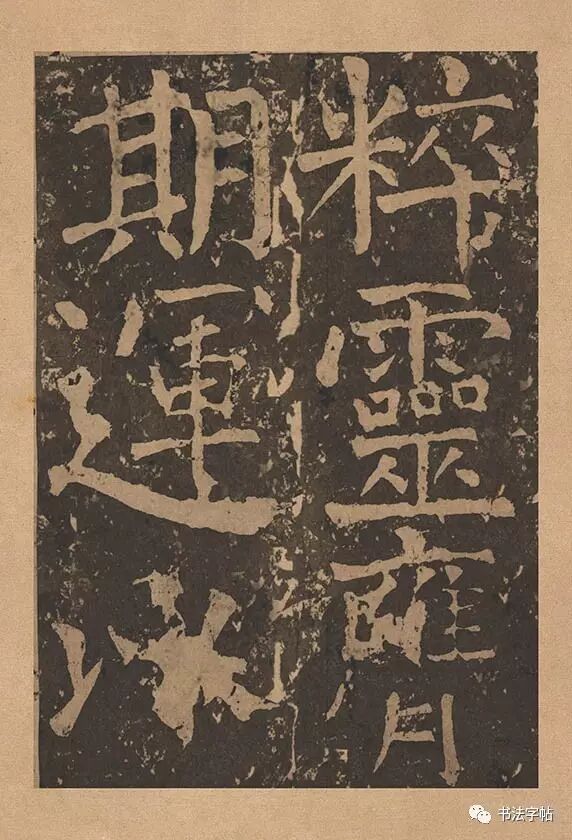 粹靈膺
期運
书法字帖